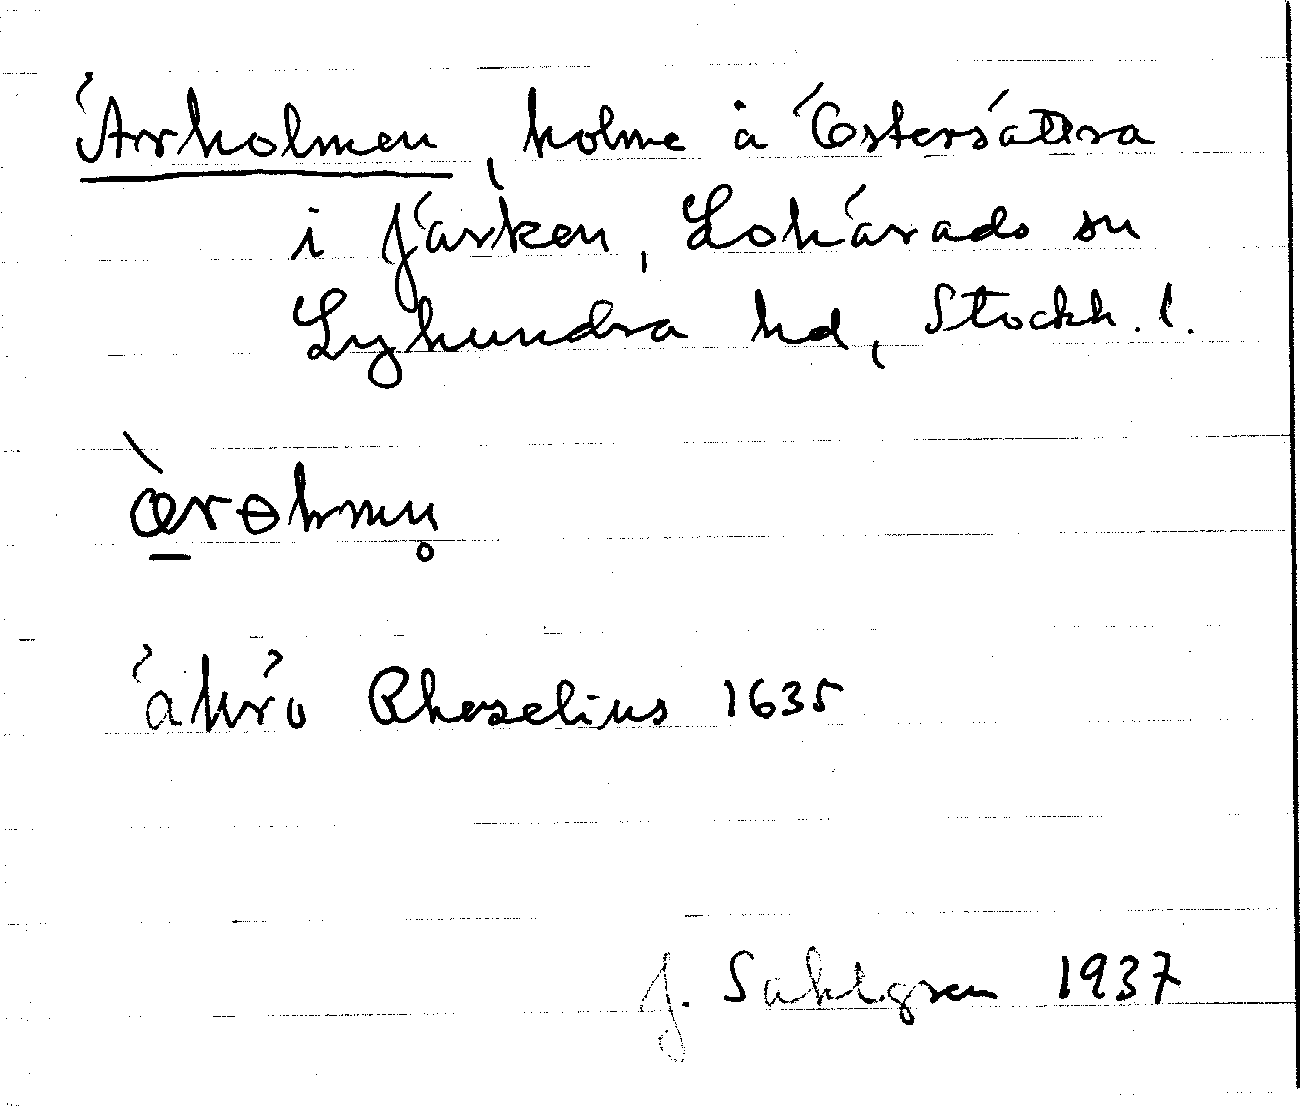 Ärrholmen, holme å Östersättra
i Järken, Lohärads sn
Lyhundra hd, Stockh. l.
æ̀rɵhmn̥
ähröö Rhezelius 1635
J. Sahlgren 1937